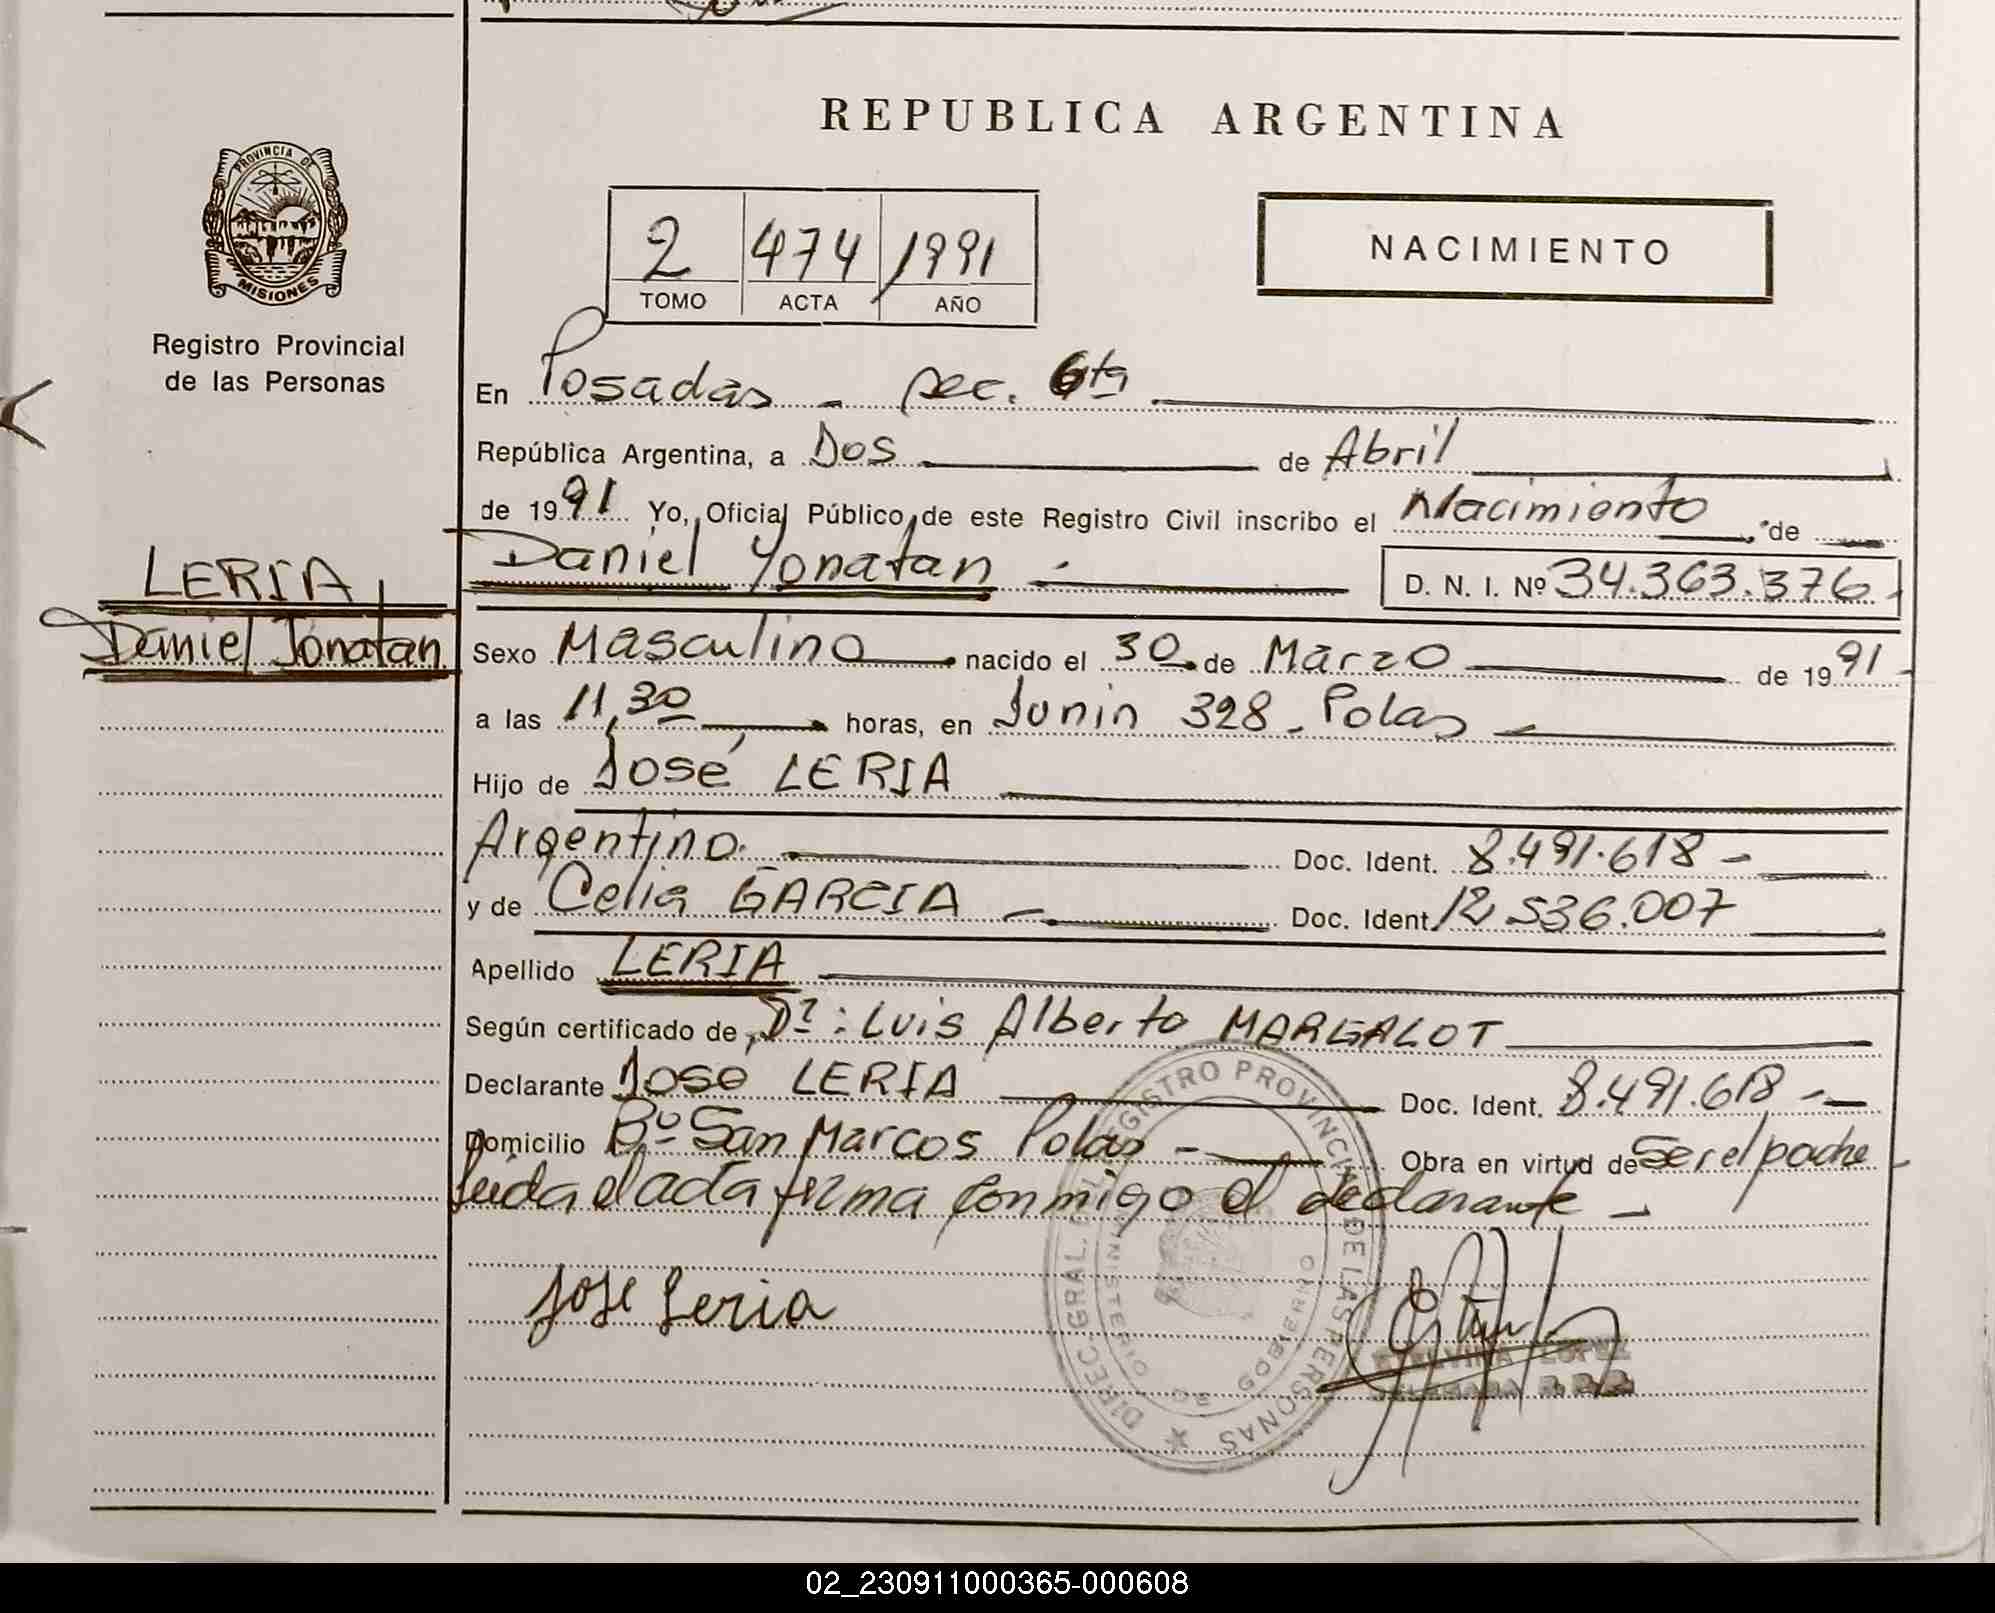 REPUBLICA ARGENTINA
PROVINCIA DE
MISIONES
Registro Provincial
de las Personas
2 474 1991
TOMO ACTA AÑO
NACIMIENTO
En Posadas - sec. 6ta
República Argentina, a Dos de Abril
de 1991 Yo, Oficial Público de este Registro Civil inscribo el Nacimiento de
Daniel Yonatan - D. N. I. Nº 34.363.376
LERIA,
Daniel Jonatan
Sexo Masculino nacido el 30 de Marzo de 1991
a las 11,30 horas, en Junin 328 - Polas -
Hijo de José LERIA
Argentino. Doc. Ident. 8.491.618 -
y de Celia GARCIA - Doc. Ident. 12.536.007
Apellido LERIA
Según certificado de Dr: Luis Alberto MARGALOT
Declarante Jose LERIA Doc. Ident. 8.491.618 -
Domicilio Bº San Marcos Polas - Obra en virtud de Ser el padre
Leida el acta firma conmigo el declarante -
Jose Leria
DIREC. GRAL. DEL REGISTRO PROVINCIAL DE LAS PERSONAS
MINISTERIO DE GOBIERNO
LOPEZ
02_230911000365-000608